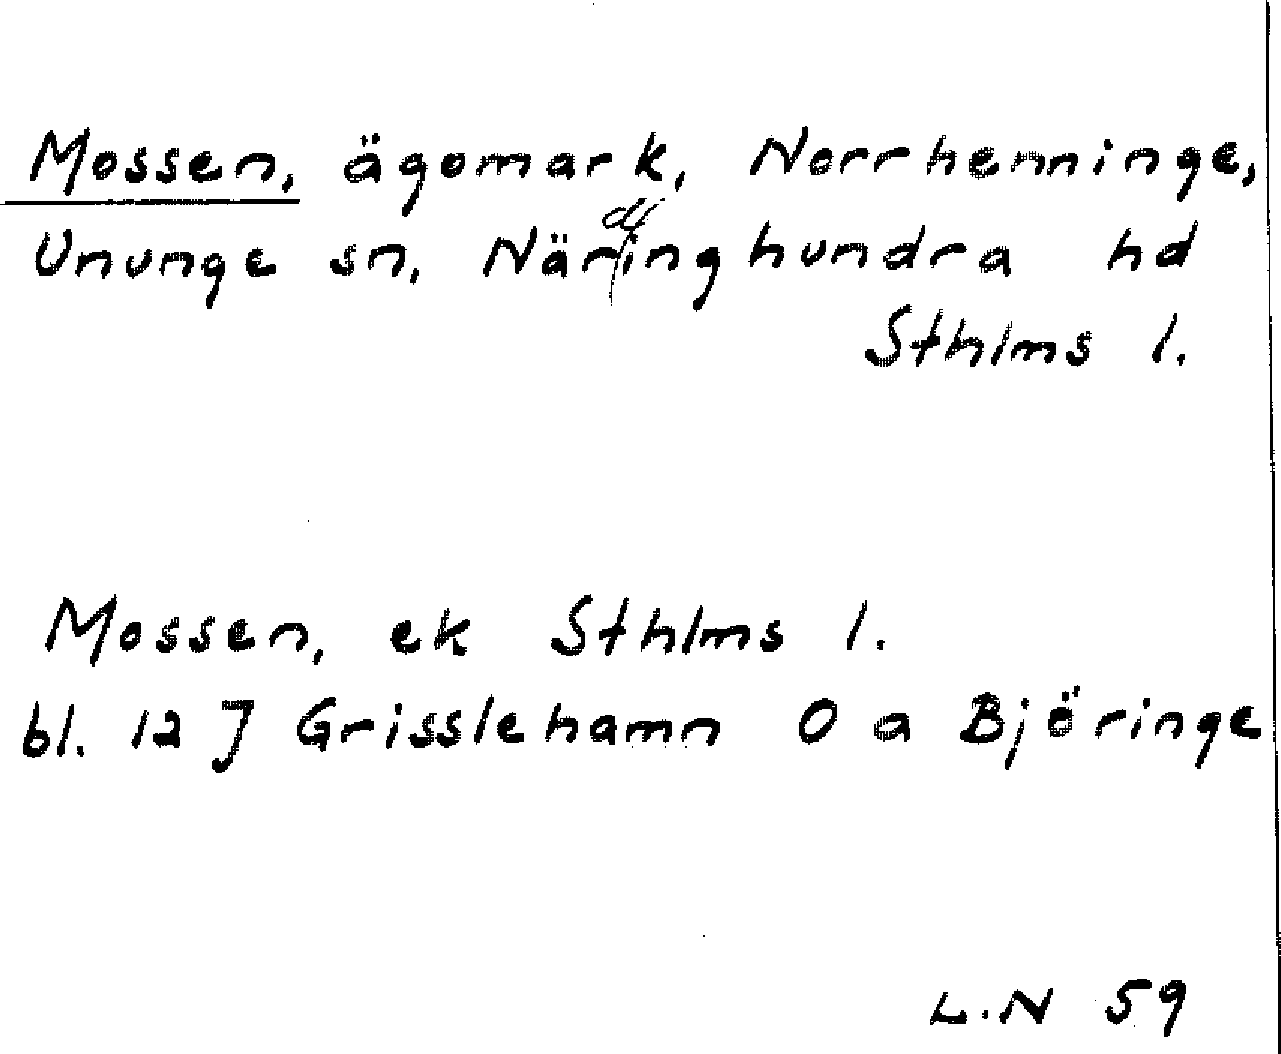 Mossen, ägomark, Norrhenninge,
Ununge sn, Närdinghundra hd
Sthlms l.
Mossen, ek Sthlms l.
bl. 12 J Grisslehamn O a Björinge
L.N 59